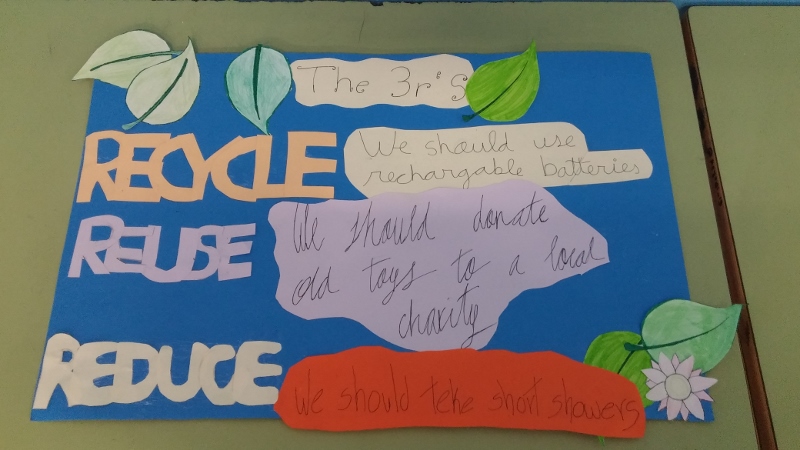 The 3r's
RECYCLE
We should use
rechargable batteries
REUSE
We should donate
old toys to a local
charity
REDUCE
We should teke short showers